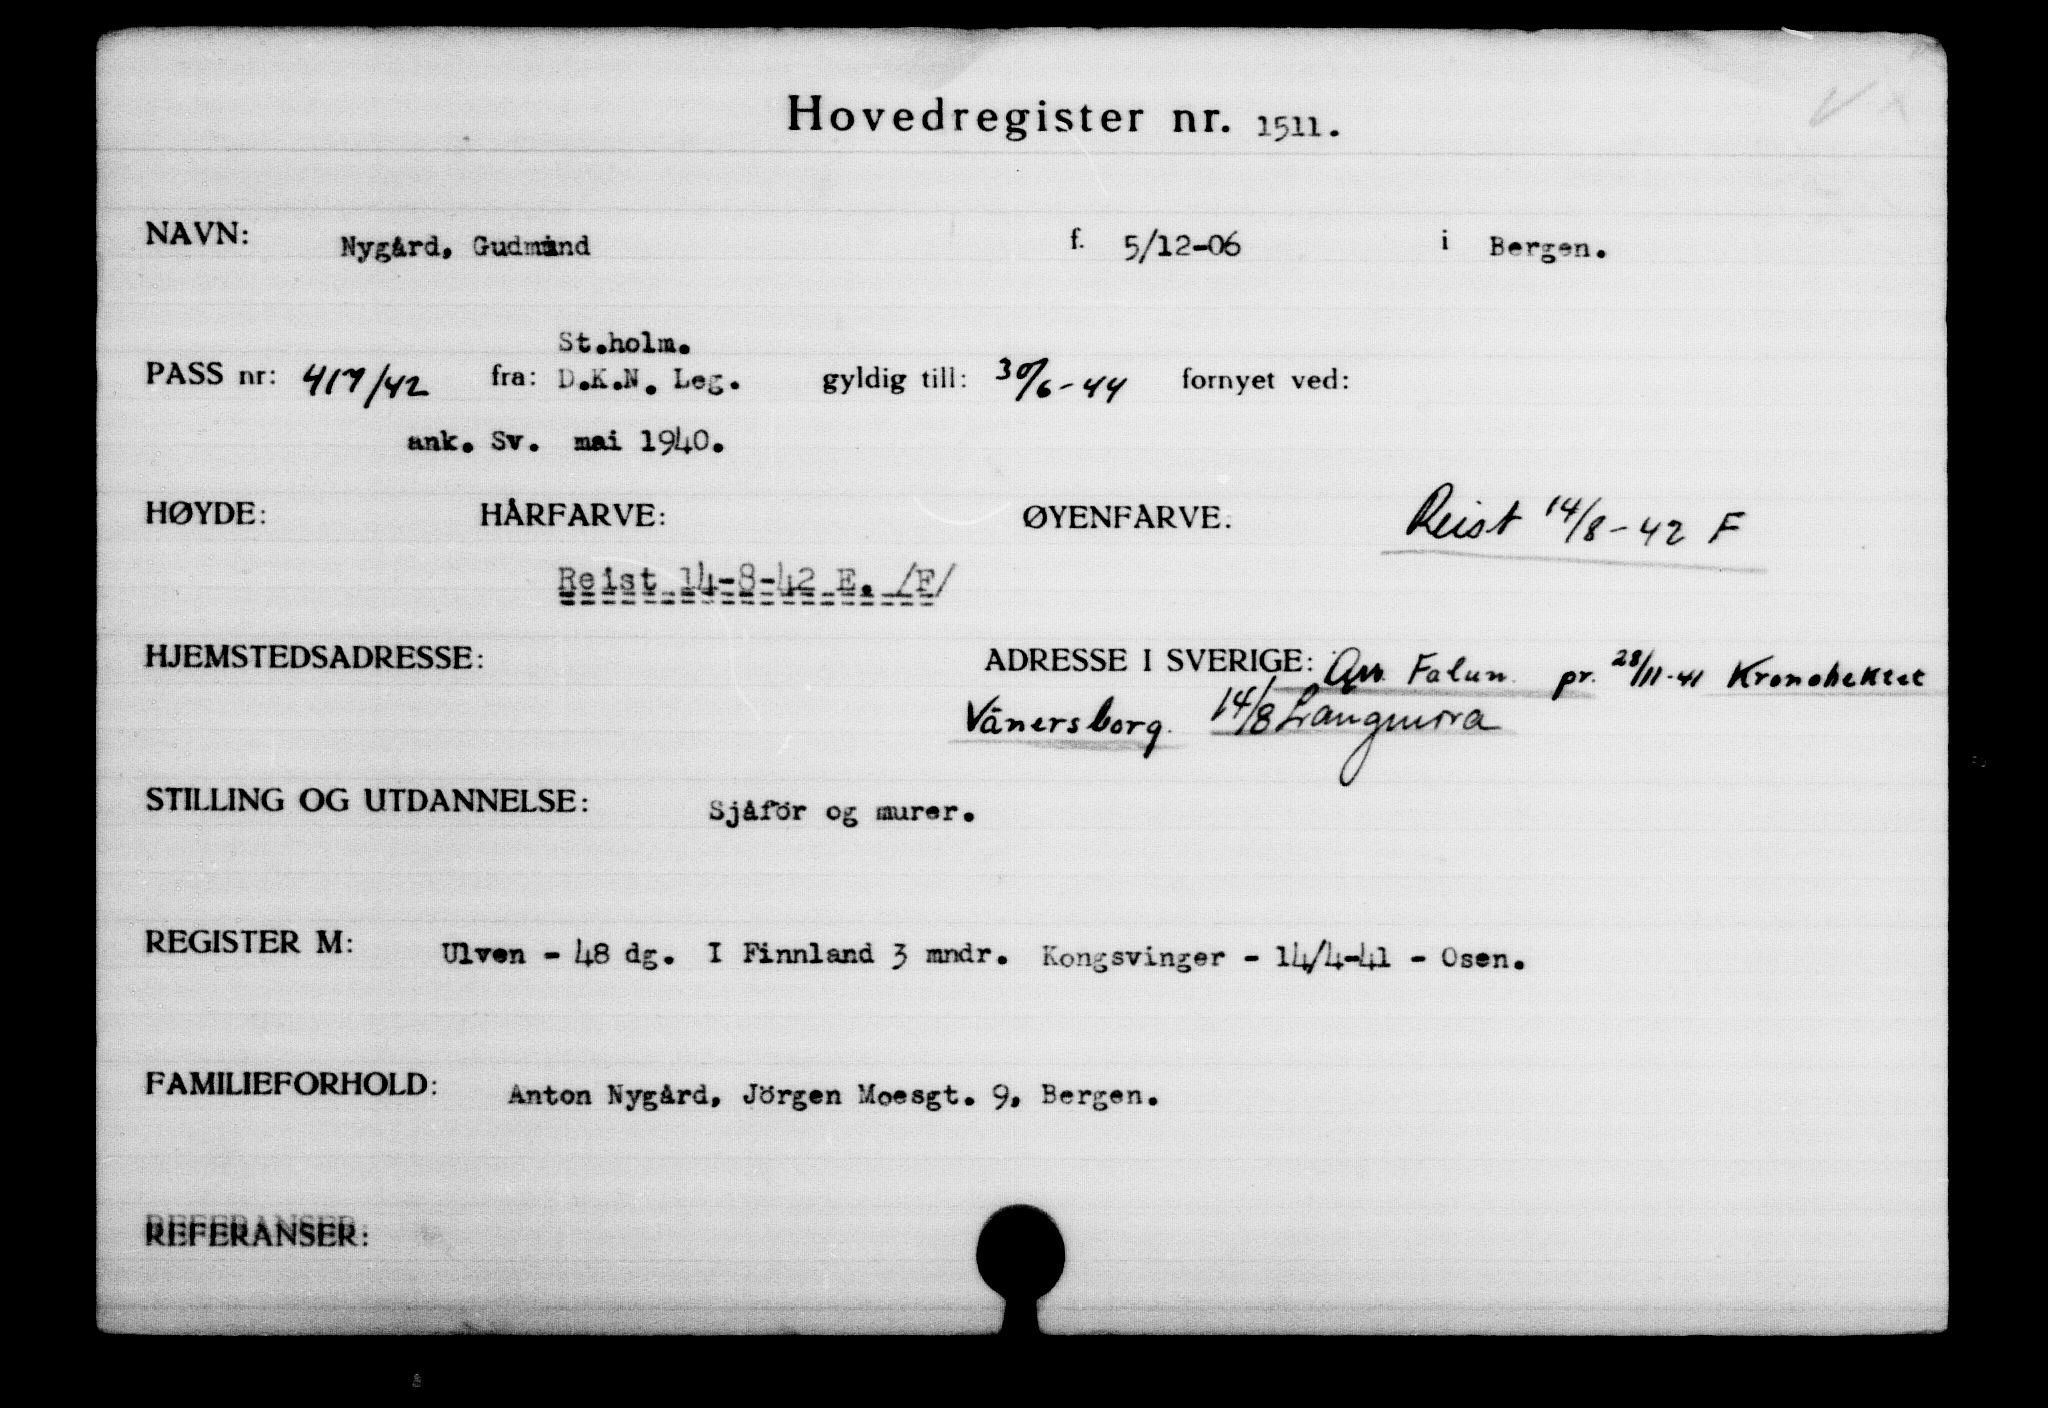 Hovedregister nr. 1511.
NAVN: Nygård, Gudmund f. 5/12-06 i Bergen.
St.holm.
PASS nr: 417/42 fra: D.K.N. Leg. gyldig till: 30/6-44 fornyet ved:
ank. Sv. mai 1940.
HØYDE: HÅRFARVE: ØYENFARVE: Reist 14/8-42 F
Reist 14-8-42 E. /F/
HJEMSTEDSADRESSE: ADRESSE I SVERIGE: Falun pr. 28/11-41 Kronohektet
Vänersborg. 14/8 Langmora
STILLING OG UTDANNELSE: Sjåför og murer.
REGISTER M: Ulven - 48 dg. I Finnland 3 mndr. Kongsvinger - 14/4-41 - Osen.
FAMILIEFORHOLD: Anton Nygård, Jörgen Moesgt. 9, Bergen.
REFERANSER: